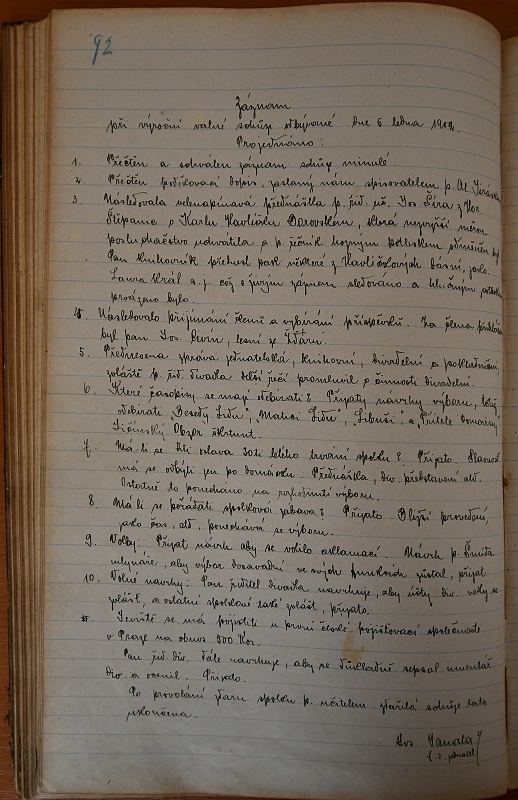 92
Záznam
při výroční valné schůzi odbývané dne 6 ledna 1904.
Projednáno:
1. Přečten a schválen záznam schůze minulé.
2. Přečten poděkovací dopis, zaslaný nám spisovatelem p. Al. Jiráskem
3. Následovala velenapínavá přednáška p. říd. uč. Jos. Šíra z Hor.
Štěpanic o Karlu Havlíčku Borovském, která nejvyšší měrou
posluchačstvo uchvátila a p. řečník hojným potleskem odměněn byl.
Pan knihovník přečetl pak některé z Havlíčkových básní, jako:
Lavra Král a j. což s živým zájmem sledováno a hlučným potleskem
provázeno bylo.
4. Následovalo přijímání členů a vybírání příspěvků. Za člena přihlášen
byl pan Jos. lesní ze Žďáru.
5. Přednesena zpráva jednatelská, knihovní, divadelní a pokladniční
zvláště p. řid. divadla delší řečí promluvil o činnosti divadelní.
6. Které časopisy se mají odebírati? Přijaty návrhy výboru, totiž
odebírati „Besedy Lidu", „Matici Lidu", „Libuši" a Přítele domoviny
Jičínský Obzor škrtnut.
7. Má-li se říti oslava 30ti letého trvání spolku? Přijato. Slavnost
má se odbýti jen po domácku. Přednáška, div. představení atd.
Ostatně to ponecháno na rozhodnutí výboru.
8. Má-li se pořádati spolková zábava? Přijato. Bližší provedení,
jako čas, atd, ponechává se výboru.
9. Volby: Přijat návrh aby se volilo aklamací. Návrh p. Šmída
mlynáře, aby výbor dosavadní ve svých funkcích zůstal, přijat.
10. Volné návrhy: Pan ředitel divadla navrhuje, aby účty div. vedly se
zvlášť, a ostatní spolkové také zvlášť, přijato.
Jeviště se má pojistiti u první české pojišťovací společnosti
v Praze na obnos 500 Kor.
Pan říd. div. dále navrhuje, aby se důkladně sepsal inventář
div. a ocenil. Přijato.
Po provolání zdaru spolku p. učitelem schůze tato
ukončena.
Jos. Janata
t. č. jednatel